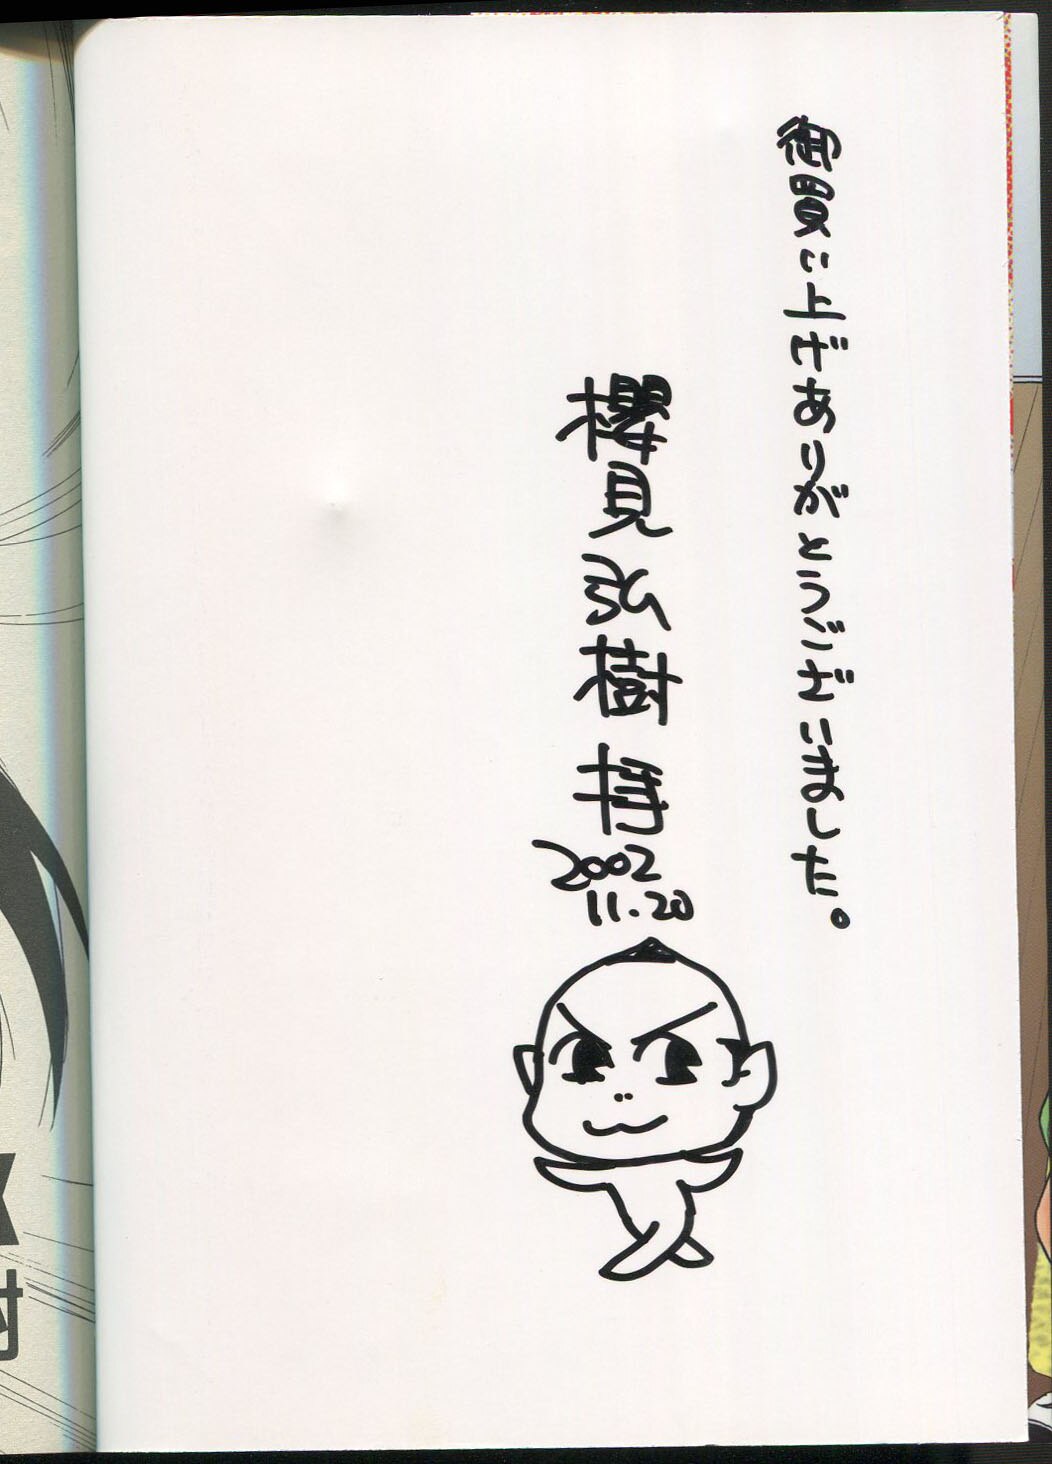 御買い上げありがとうございました。
櫻見弘樹 拝
2002
11.20